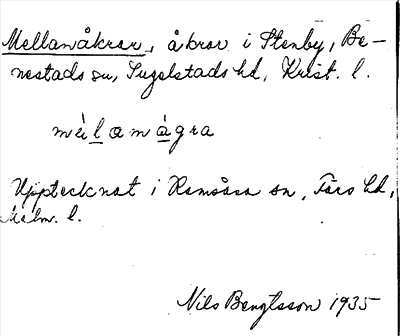 Mellanåkrar, åkrar i Stenby, Be-
nestads sn, Ingelstads hd, Krist. l.
mèlamágra
Upptecknat i Ramsåsa sn, Färs hd,
Malm. l.
Nils Bengtsson 1935